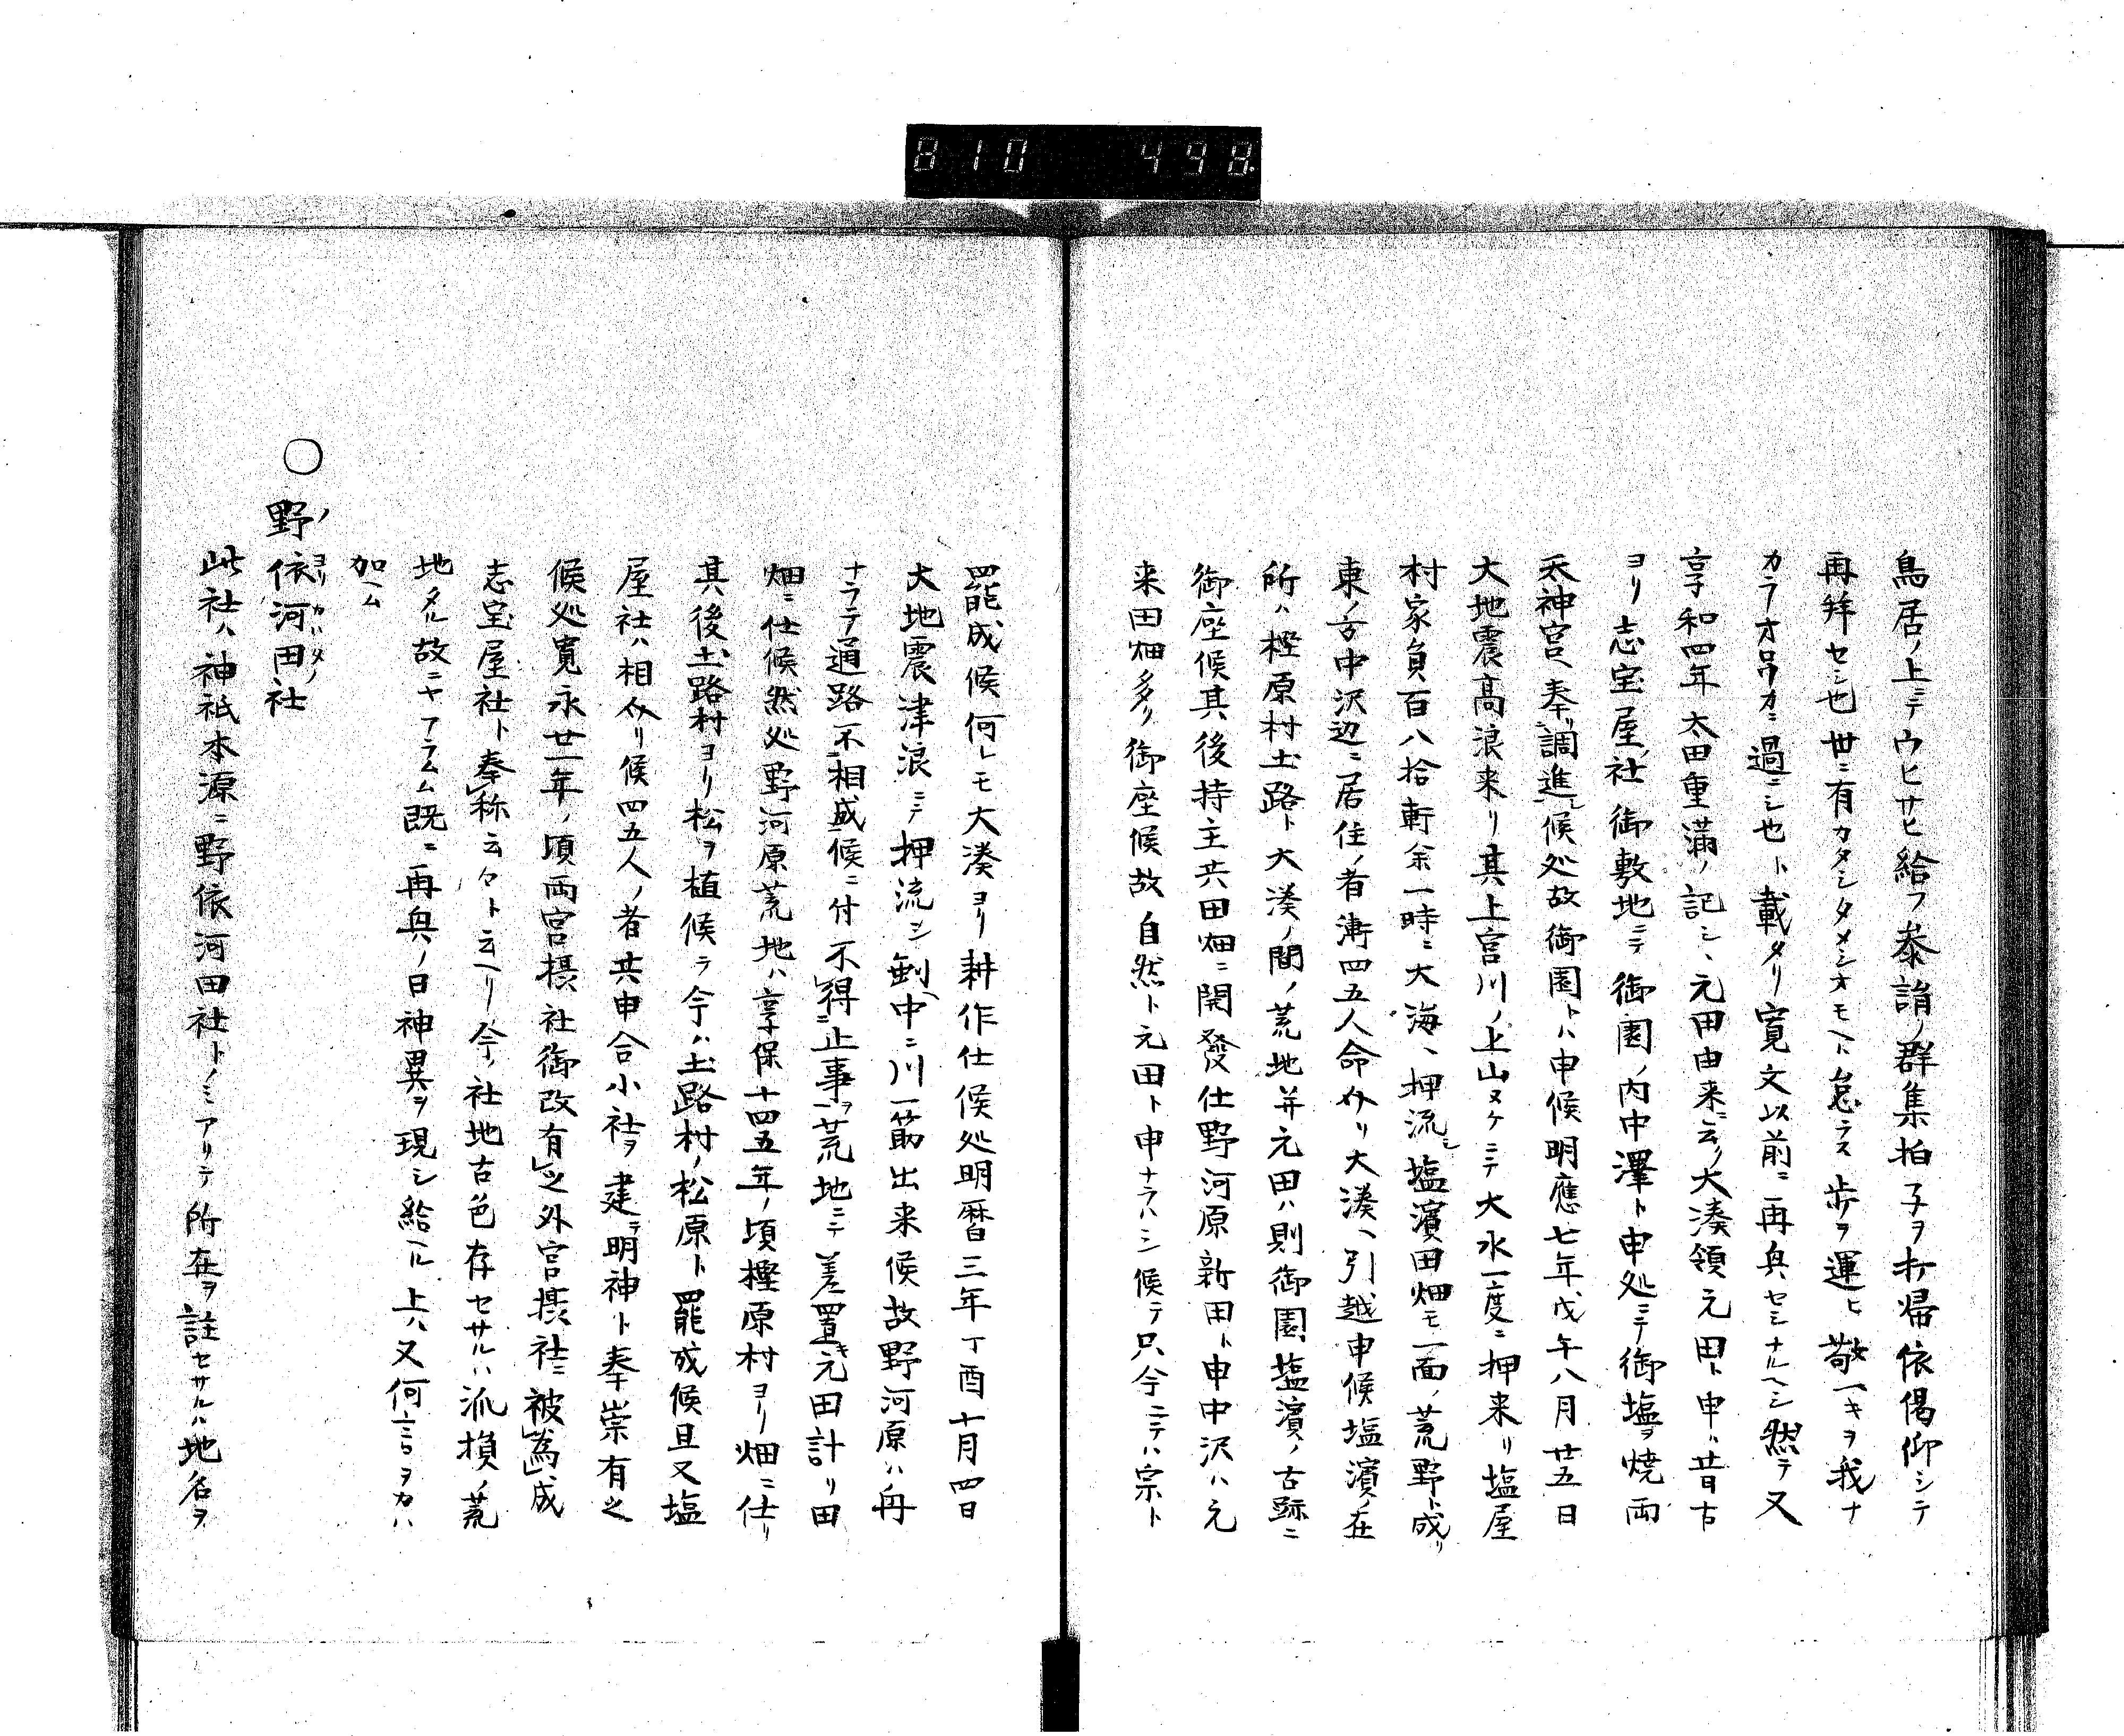 810 498.
鳥居ノ上ニテウヒサヒ給フ参詣ノ群集拍子ヲ打帰依偈仰シテ
再拝セシ也世ニ有カタシタメシオモヘト怠ラス歩ヲ運ヒ敬ヘキヲ我ナ
カラオロカニ過ニシ也ト載タリ寛文以前ニ再興セシナルヘシ然テ又
享和四年太田重満ノ記シヽ元田由来ニ云ク大湊領元田ト申ハ昔古
ヨリ志宝屋ノ社御敷地ニテ御園ノ内中澤ト申処ニテ御塩ヲ焼両
太神宮ヘ奉リ調進シ候処故御園トハ申候明應七年戊午八月廿五日
大地震高浪来リ其上宮川ノ上山ヌケニテ大水一度ニ押来リ塩屋
村家員百八拾軒余一時ニ大海ヘ押流シ塩濱田畑モ一面ノ荒野ト成リ
東ノ方中沢辺ニ居住ノ者漸四五人命介リ大湊ヘ引越申候塩濱ノ在
所ハ樫原村土路ト大湊ノ間ノ荒地并元田ハ則御園塩濱ノ古跡ニ
御座候其後持主共田畑ニ開發仕野河原新田ト申中沢ハ元
来田畑多ク御座候故自然ト元田ト申ナラハシ候テ只今ニテハ宗ト
罷成候何レモ大湊ヨリ耕作仕候処明暦三年丁酉十月四日
大地震津浪ニテ押流シ中ニ川一筋出来候故野河原ハ舟
ナラテ通路不相成候ニ付不得止事ヲ荒地ニテ差置キ元田計リ田
畑ニ仕候然処野河原荒地ハ享保十四五年ノ頃樫原村ヨリ畑ニ仕リ
其後土路村ヨリ松ヲ植候テ今ハ土路村ノ松原ト罷成候且又塩
屋社ハ相介リ候四五人ノ者共申合小社ヲ建テ明神ト奉崇有之
候処寛永廿一年ノ頃両宮摂社御改有之外宮摂社ニ被為成
志宝屋社ト奉称云々ト云ヘリ今ノ社地古色存セサルハ流損ノ荒
地タル故ニヤアラムム既ニ再興ノ日神異ヲ現シ給ヘル上ハ又何言ヲカハ
加ヘム
○野ノ依ヨリ河田カハタノ社
此社ハ神祇本源ニ野依河田社トノミアリテ所在ヲ註セサルハ地名ヲ